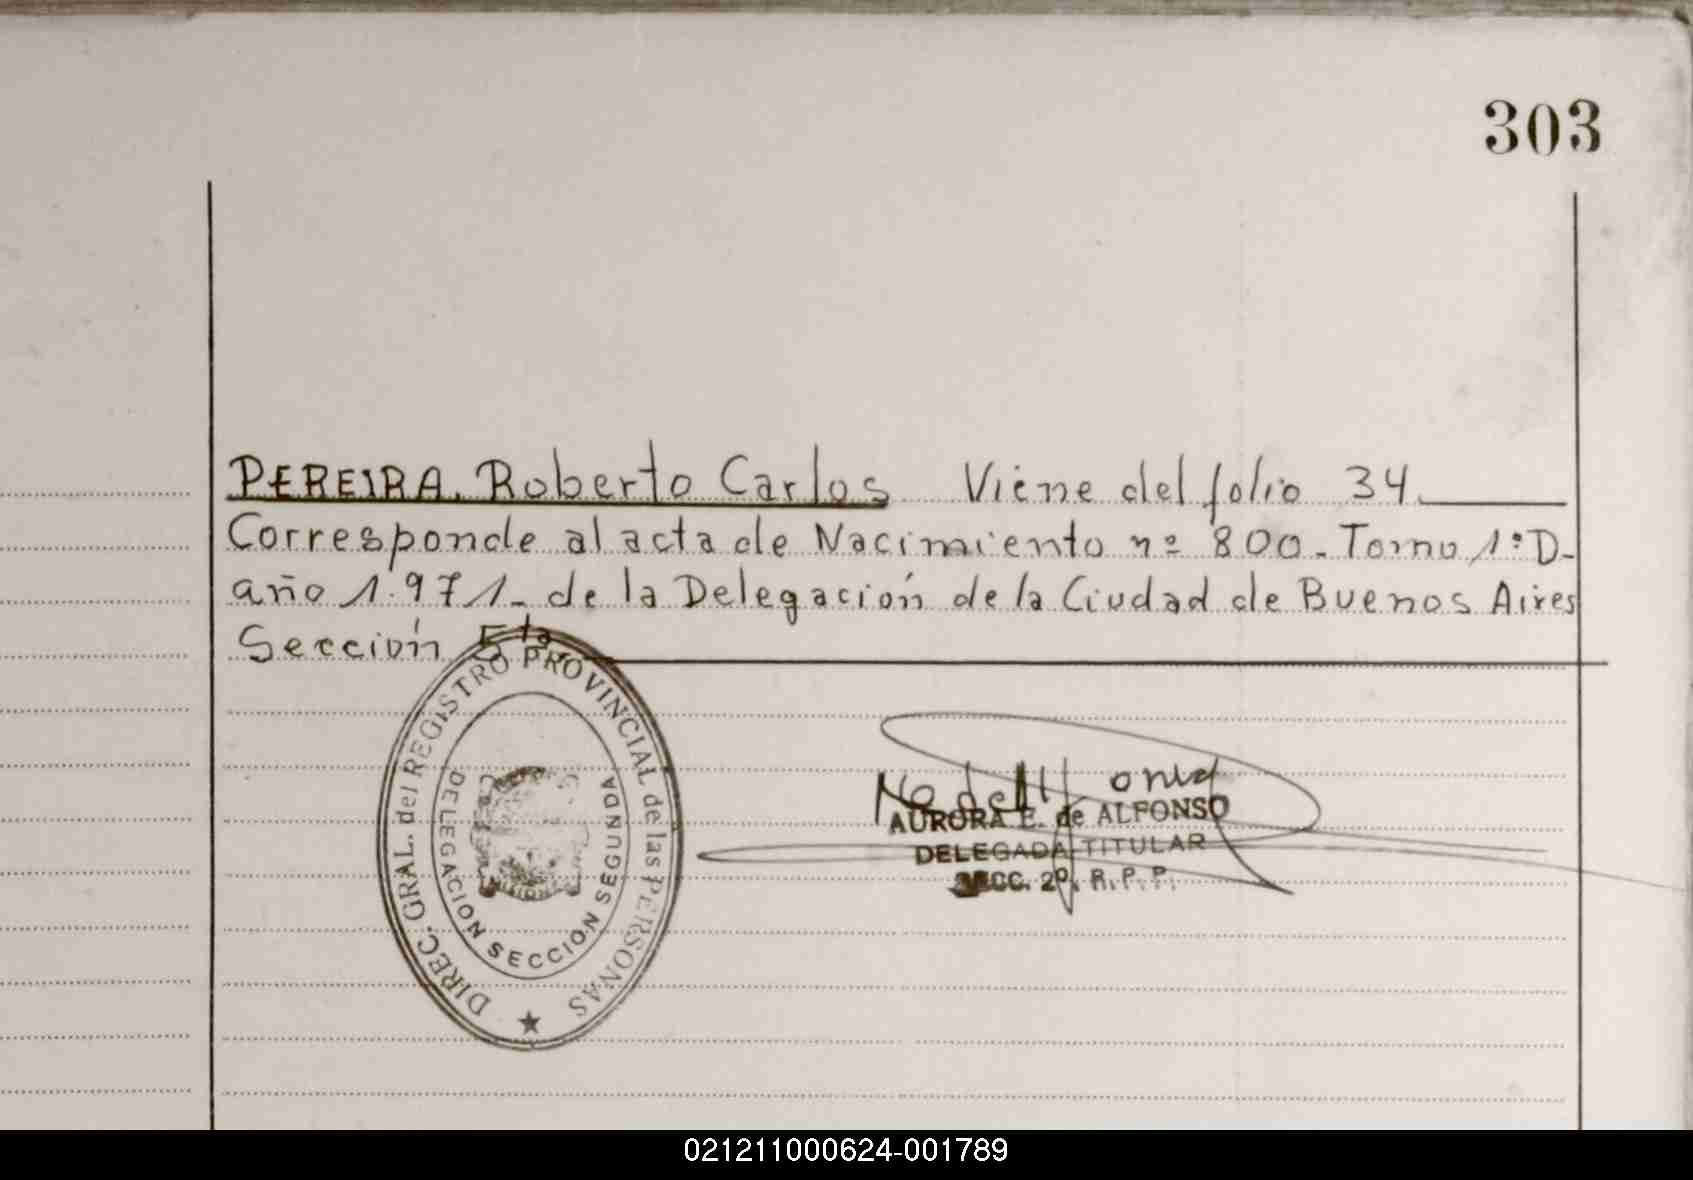 303
PEREIRA, Roberto Carlos Viene del folio 34
Corresponde al acta de Nacimiento nº 800 - Tomo 1º D-
año 1.971- de la Delegación de la Ciudad de Buenos Aires
Sección 5ta
DIREC. GRAL. del REGISTRO PROVINCIAL de las PERSONAS
DELEGACION SECCION SEGUNDA
AURORA E. de ALFONSO
DELEGADA TITULAR
SECC. 2º. R.P.P.
021211000624-001789